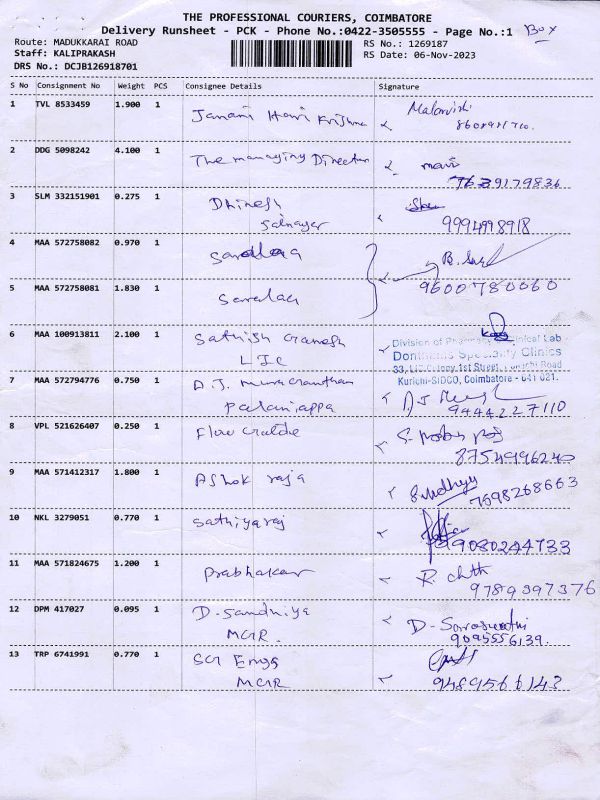 THE PROFESSIONAL COURIERS, COIMBATORE
Delivery Runsheet - PCK - Phone No.:0422-3505555 - Page No.:1 Box
Route: MADUKKARAI ROAD
Staff: KALIPRAKASH
DRS No.: DCJB126918701
RS No.: 1269187
RS Date: 06-Nov-2023
S No Consignment No Weight PCS Consignee Details Signature
1 TVL 8533459 1.900 1 Janani Hari Krishna
2 DDG 5098242 4.100 1 The managing Director mani
7639179836
3 SLM 332151901 0.275 1 Dhinesh
Sainagar 9994998918
4 MAA 572758082 0.970 1
5 MAA 572758081 1.830 1 Saralaa 9600780060
6 MAA 100913811 2.100 1 Sathish Ganesh
LIC
Division of Clinical Lab
Speciality Clinics
33, LIC Colony 1st Street, Road
Kurichi-SIDCO, Coimbatore - 641 021.
7 MAA 572794776 0.750 1 A.J.
Palaniappa 9444227110
8 VPL 521626407 0.250 1 Flow
8754996240
9 MAA 571412317 1.800 1 Ashok raja Sindhya
7598268663
10 NKL 3279051 0.770 1 Sathiyaraj
9080244733
11 MAA 571824675 1.200 1 Prabhakar R.
9789397376
12 DPM 417027 0.095 1 D. Sandhiya D-
MGR. 9095556139.
13 TRP 6741991 0.770 1 SGT Engg
MGR 9489566143